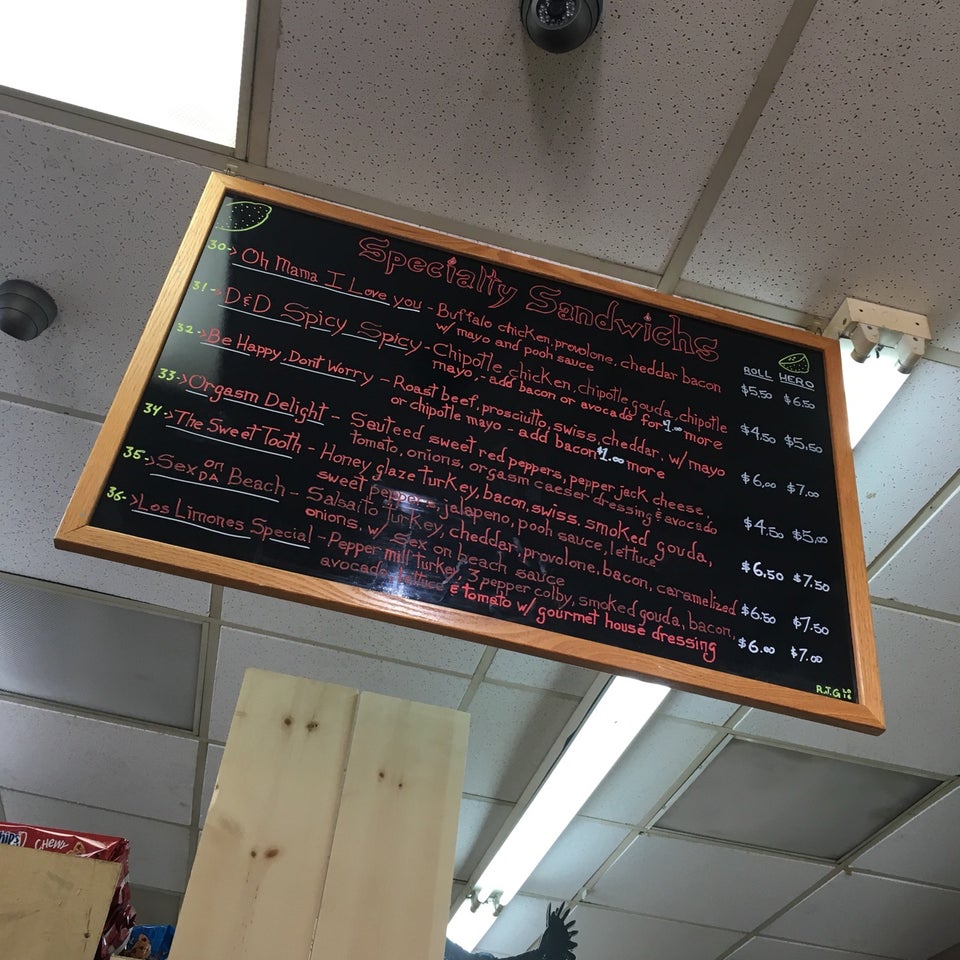 Specialty Sandwichs
ROLL HERO
30-> Oh Mama I Love you - Buffalo chicken, provolone, cheddar bacon $5.50 $6.50
w/ mayo and pooh sauce
31-> D&D Spicy Spicy - Chipotle chicken, chipotle gouda, chipotle $4.50 $5.50
mayo - add bacon or avocado for $1.00 more
32-> Be Happy Dont Worry - Roast beef, prosciutto, swiss, cheddar, w/ mayo $6.00 $7.00
or chipotle mayo - add bacon $1.00 more
33-> Orgasm Delight - Sauteed sweet red peppers, pepper jack cheese, $4.50 $5.00
tomato, onions, orgasm caeser dressing & avocado
34-> The Sweet Tooth - Honey glaze Turkey, bacon, swiss, smoked gouda, $6.50 $7.50
sweet peppers, jalapeno, pooh sauce, lettuce
35-> Sex on DA Beach - Salsalito Turkey, cheddar, provolone, bacon, caramelized $6.50 $7.50
onions, w/ Sex on beach sauce
36-> Los Limones Special - Pepper mill turkey, 3 pepper colby, smoked gouda, bacon, $6.00 $7.00
avocado, lettuce & tomato w/ gourmet house dressing
R.T.G 2016
hips
CHEWY